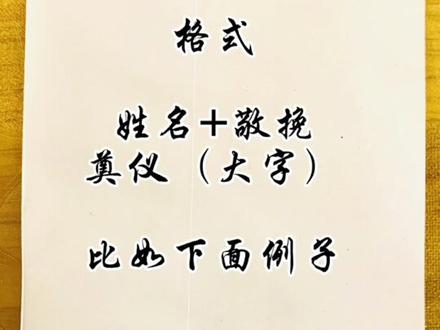 格式
姓名+敬挽
奠仪(大字)
比如下面例子